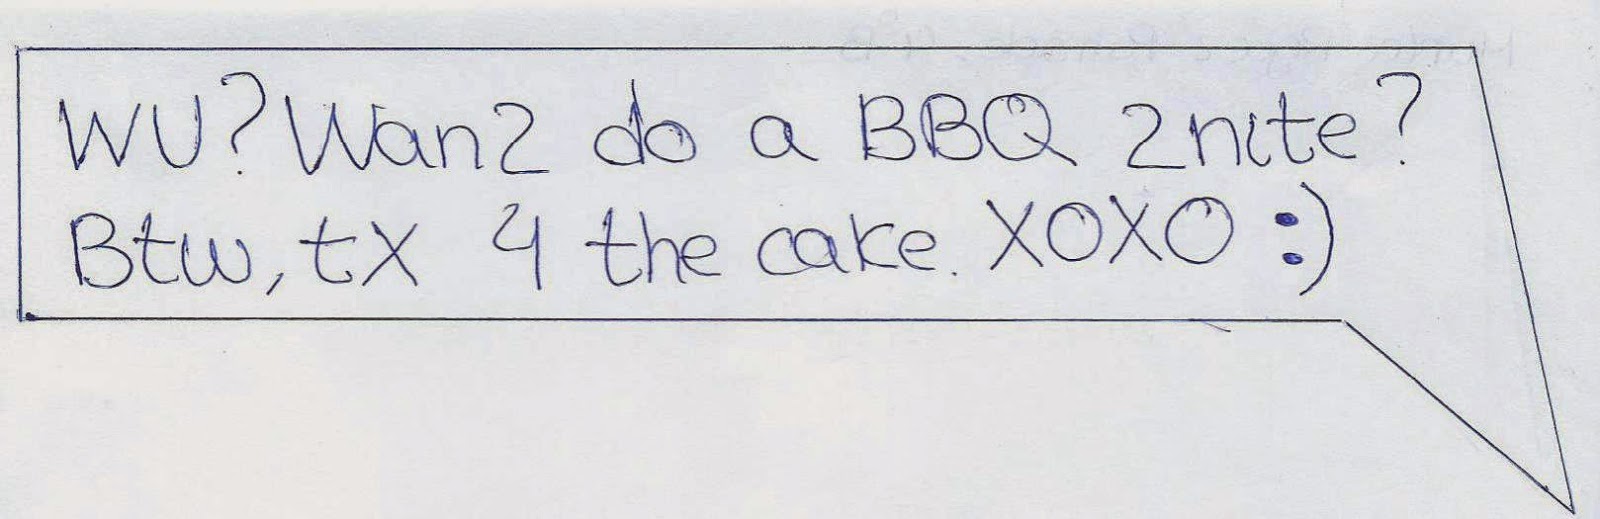 WU? Wan2 do a BBQ 2nite?
Btw, tx 4 the cake. XOXO :)